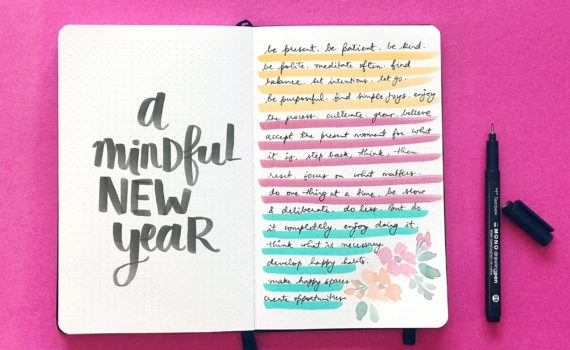 a
mindful
NEW
year
be present. be patient. be kind.
be polite. meditate often. find
balance. set intentions. let go.
be purposful. find simple joys. enjoy
the process. cultivate. grow. believe
accept the present moment for what
it is. step back, think, then
react. focus on what matters.
do one thing at a time. be slow
& deliberate. do less. But do
it completely. enjoy doing it.
think what is necessary
develop happy habits.
make happy spaces
create opportunities
Tombow
MONO drawing pen